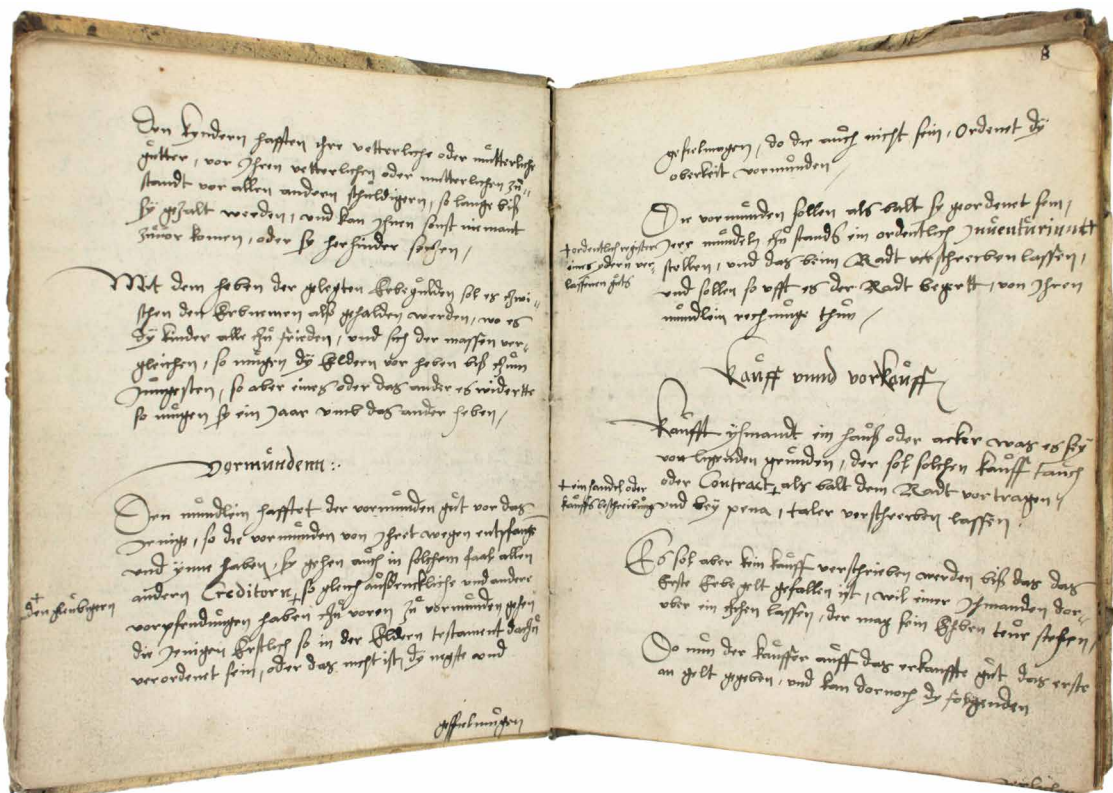 Den kyndern hafften ihre vetterliche oder mütterliche
gütter, vor Ihren vetterlichen oder mutterlichen zu-
standt vor allen andern schuldigern, so lange biß
sy gezalt werden, vnd kan Ihnen sonst niemant
zuuor komen, oder sy herhinder
Mit dem heben der gelegten Erbegulden sol es zwi-
schen den Erbnemen alß gehalden werden, wo es
dy kinder alle zu frieden, vnd sich der massen ver-
gleichen, so mügen dy Eldern vor heben biß zum
Jungesten, so aber eines oder das ander es widerte
so mügen sy ein Jaar vmb das ander heben,
Vormündenn:.
Den mündlein hafftet der vormunden gut vor das
Jenige, so die vormunden von Ihret wegen entpfangen
vnd ynne haben, sy gehen auch in solchem faal allen
andern Creditorn, so gleich außdruckliche vnd andere
+ den gleubigern
vorpfendungen haben zu voren zu vormunden
die Jenigen Erstlich so in der Eldern testament dazu
verordenet sein, oder das nicht ist, dy negste vnd
8
do die auch nicht sein, Ordenet dy
oberkeit vormunden,
Die vormunden sollen als balt sy geordenet sein,
+ ordentlich register
eines ydern ver-
lassenen guts
Jrer mundeln zu stands ein ordentlich Inuentarium
stellen, vnd das beim Radt verschreiben lassen,
vnd sollen so offt es der Radt begertt, von Ihren
mündlein rechnunge thun,
Kauff vnnd vorkauff
Kaufft yhmandt ein hauß oder acker was es sey
von ligenden grunden, der sol solchen kauff
+ ein handel oder
kauffs beschreibung
oder Contract, als balt dem Radt vortragen,
vnd bey pena, 1 taler verschreiben lassen.
Es sol aber kein kauff verschrieben werden biß das das
Erste Erbe gelt gefallen ist, wil einer Ihmanden dor-
uber ein lassen, der mag sein Ebben teur stehen,
Do nun der kauffer auff das erkauffte gut das erste
an gelt gegeben, vnd kan dornoch dy folgenden